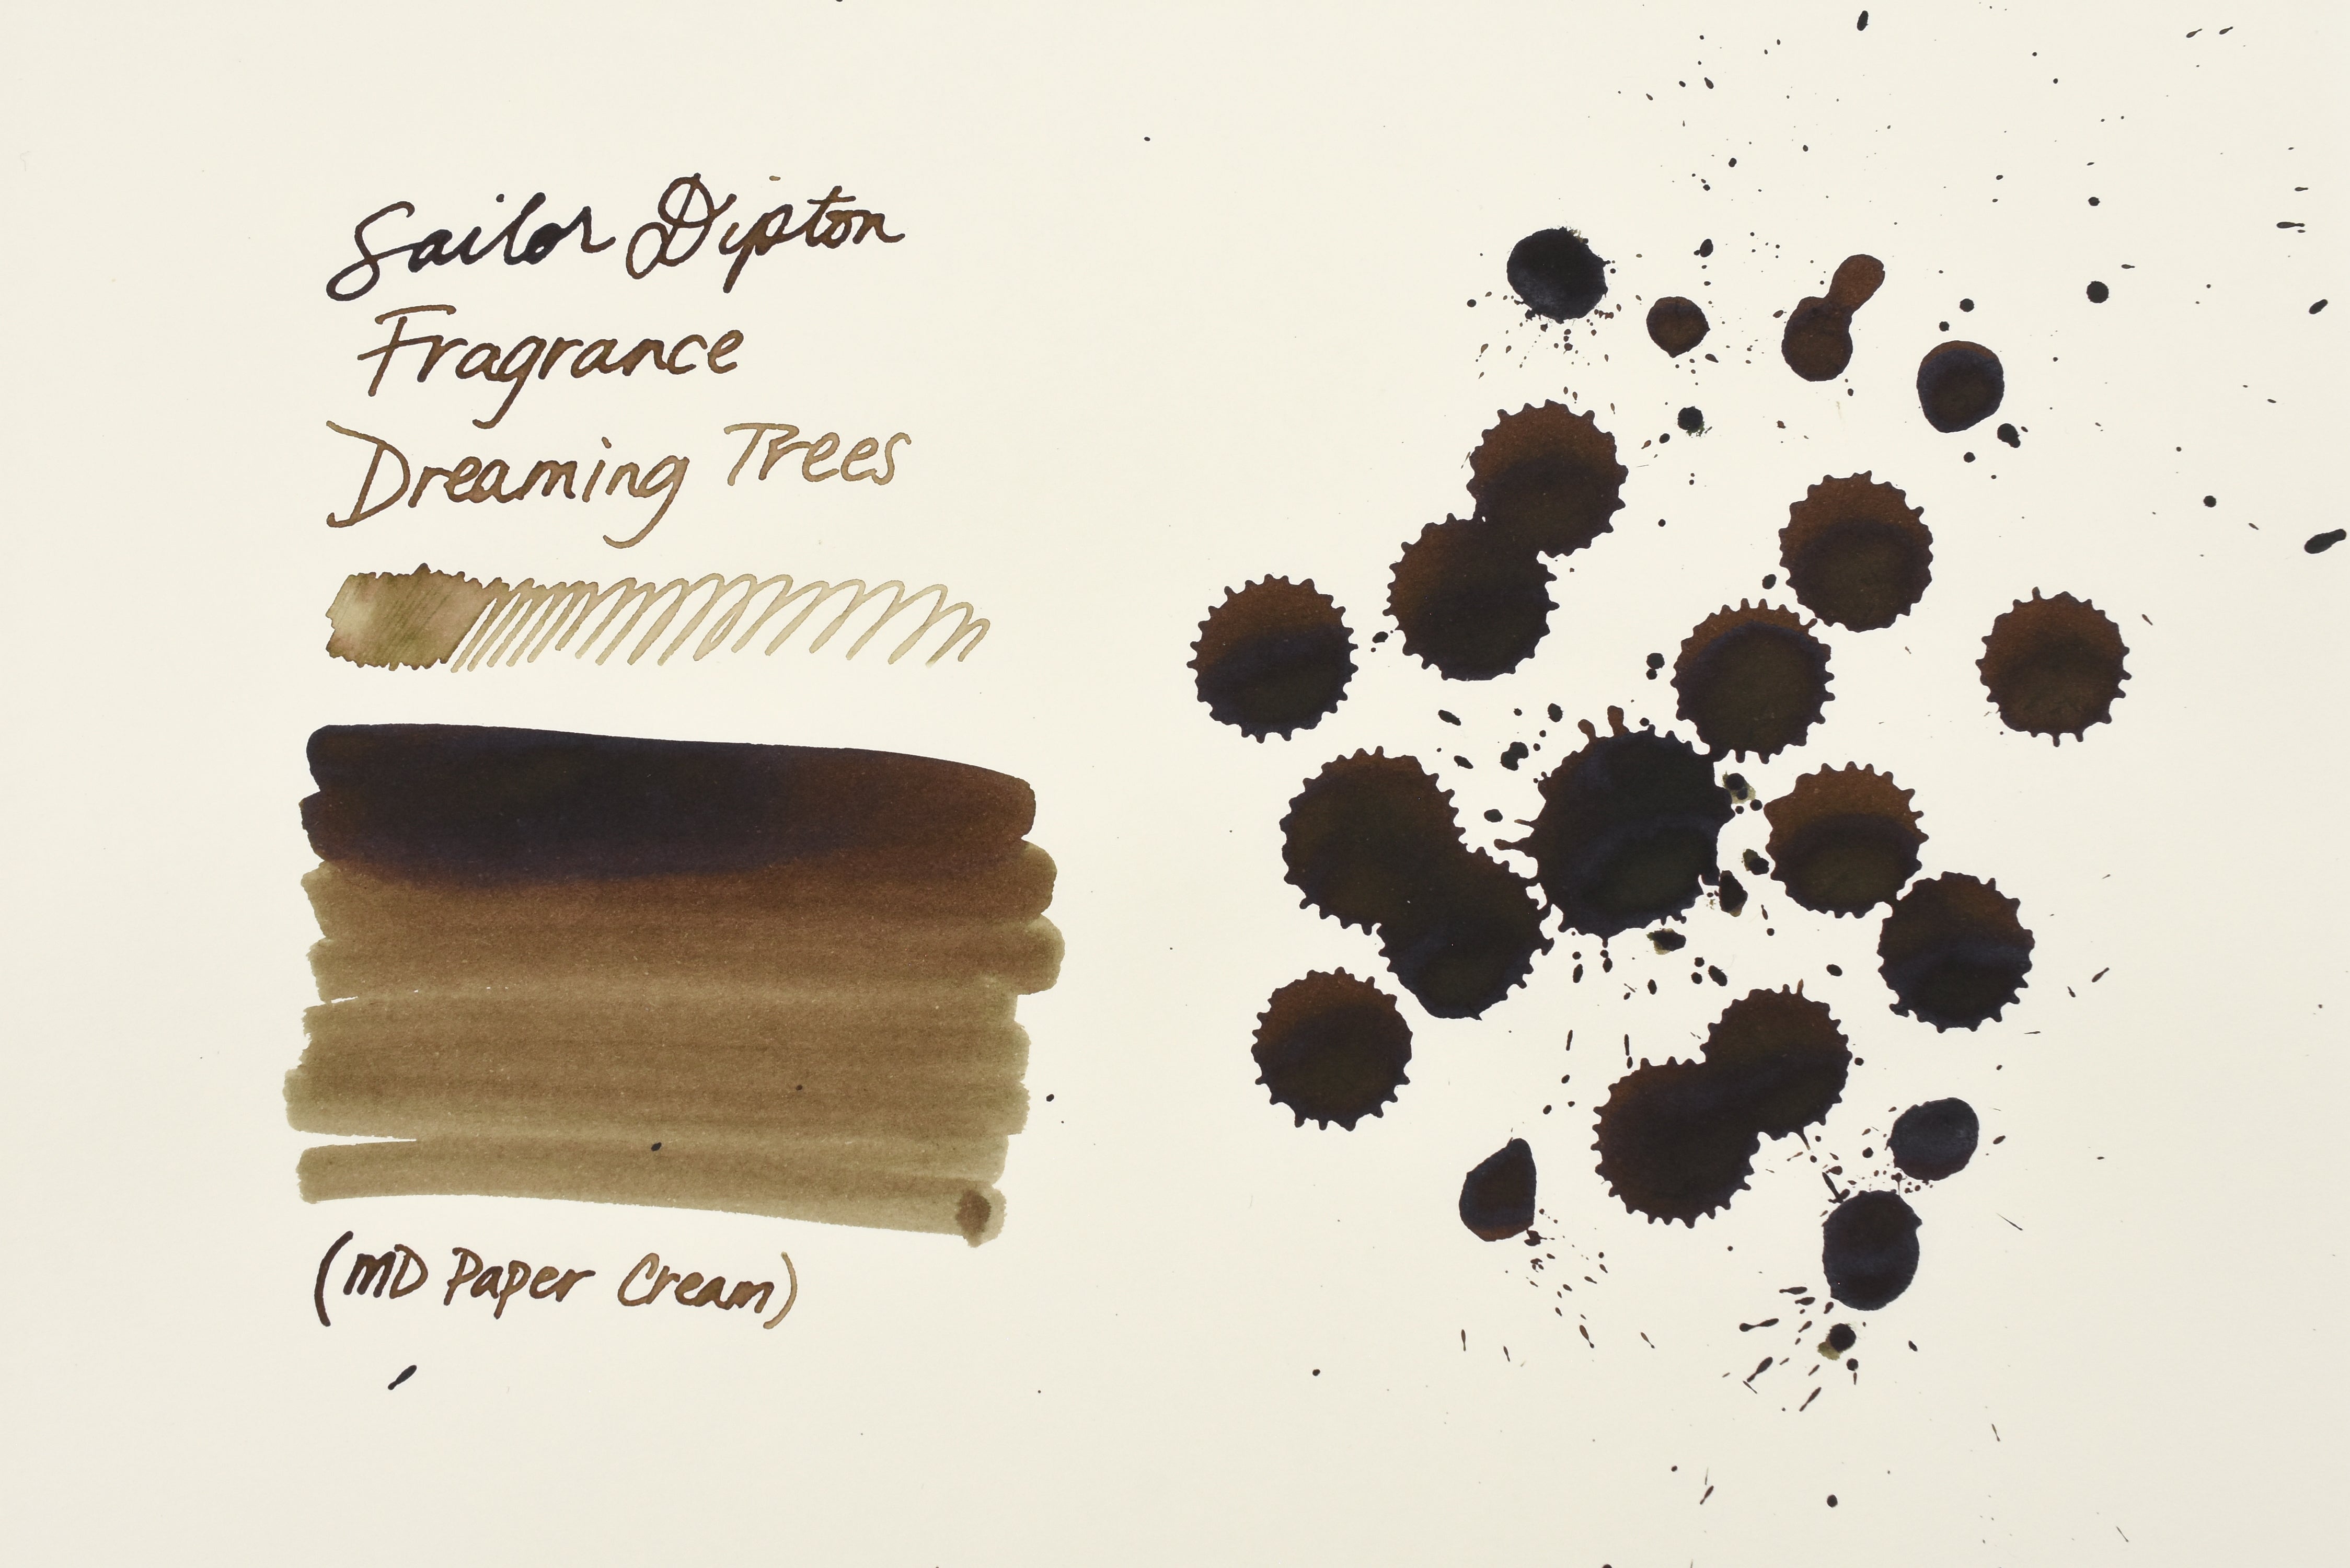 Sailor Dipton
Fragrance
Dreaming Trees
(MD Paper Cream)